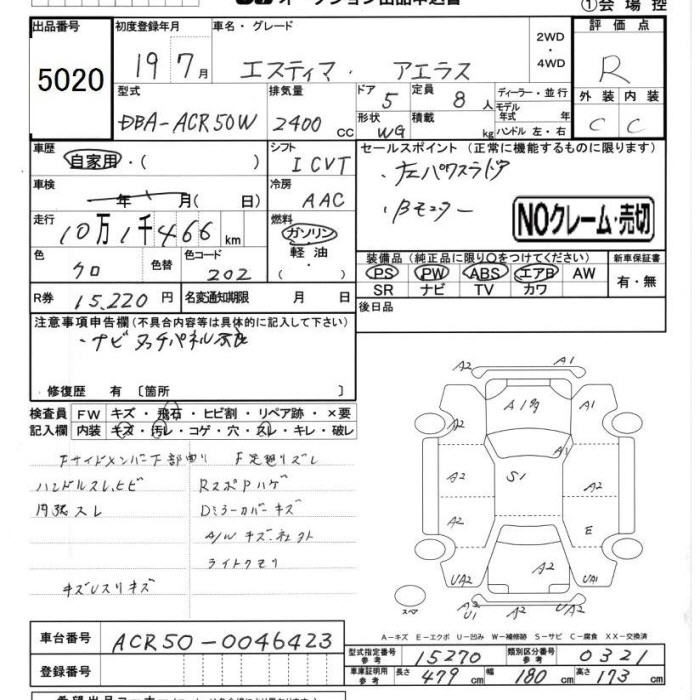 オークション出品申込書 ①会場控
出品番号 5020
初度登録年月 19 7月
車名・グレード エスティマ・アエラス
2WD ・ 4WD
評価点 R
型式 DBA-ACR50W
排気量 2400 CC
ドア 5
定員 8人
形状 WG
積載 kg
ディーラー・並行
モデル年式 年
ハンドル 左・右
外装 C 内装 C
車歴 自家用・( )
シフト ICVT
セールスポイント (正常に機能するものに限ります)
・左パワスラドア
・Bモニター
NOクレーム・売切
車検 年 月( 日)
冷房 AAC
走行 10万1千466km
燃料 ガソリン・軽油・( )
色 クロ 色替 色コード 202
装備品 (純正品に限り○をつけてください)
PS PW ABS エアB AW
SR ナビ TV カワ
新車保証書 有・無
R券 15,220円
名変通知期限 月 日
後日品
注意事項申告欄(不具合内容等は具体的に記入して下さい)
・ナビタッチパネル不良
修復歴 有 〔箇所 〕
検査員記入欄
FW キズ・飛石・ヒビ割・リペア跡・×要
内装 キズ・汚レ・コゲ・穴・スレ・キレ・破レ
Fサイドメンバー下部曲り F足廻りズレ
ハンドルスレ、ヒビ RスポPハゲ
内張スレ Dミラーカバーキズ
A/Wキズ
ライトクモリ
キズUスリキズ
A2 A1
A1 A1
A2 S1 A2
A2 E
UA2 A2 UA1
A2 U1 A2
スペア
A-キズ E-エクボ U-凹み W-補修跡 S-サビ C-腐食 XX-交換済
車台番号 ACR50-0046423
登録番号
型式指定番号 参考 15270
類別区分番号 参考 0321
車庫証明用 参考 長さ 479cm 幅 180cm 高さ 173cm